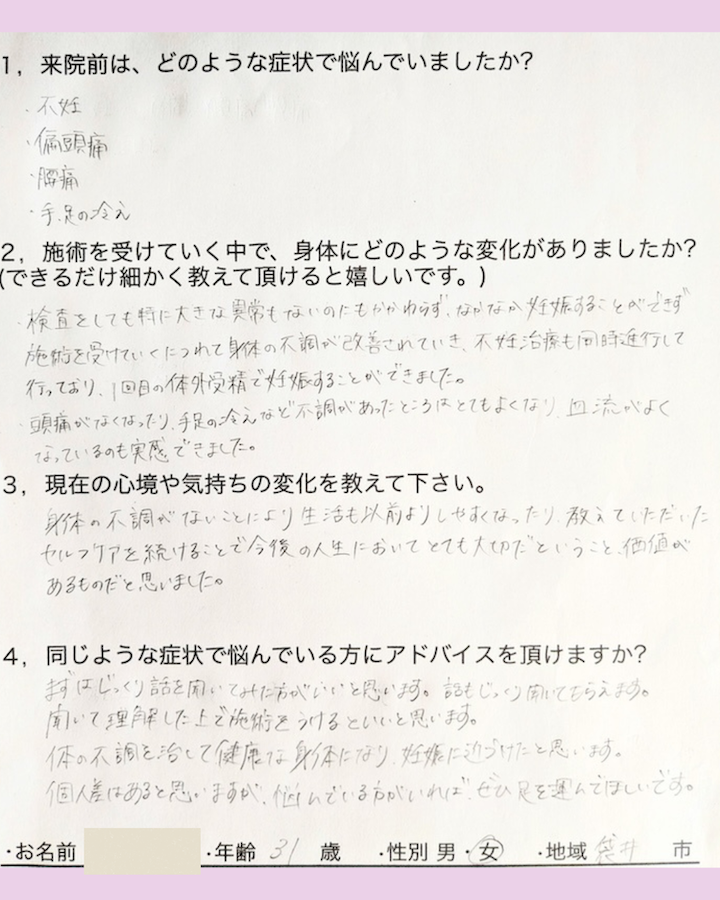 1，来院前は、どのような症状で悩んでいましたか?
・不妊
・偏頭痛
・腰痛
・手、足の冷え
2，施術を受けていく中で、身体にどのような変化がありましたか?
(できるだけ細かく教えて頂けると嬉しいです。)
・検査をしても特に大きな異常もないのにもかかわらず、なかなか妊娠することができず
施術を受けていくにつれて身体の不調が改善されていき、不妊治療も同時進行して
行っており、1回目の体外受精で妊娠することができました。
・頭痛がなくなったり、手足の冷えなど不調があったところはとてもよくなり、血流がよく
なっているのも実感できました。
3，現在の心境や気持ちの変化を教えて下さい。
身体の不調がないことにより生活も以前よりしやすくなったり、教えていただいた
セルフケアを続けることで今後の人生においてとても大切だということ、価値が
あるものだと思いました。
4，同じような症状で悩んでいる方にアドバイスを頂けますか?
まずはじっくり話を聞いてみた方がいいと思います。話もじっくり聞いてもらえます。
聞いて理解した上で施術をうけるといいと思います。
体の不調を治して健康な身体になり、妊娠に近づけたと思います。
個人差はあると思いますが、悩んでいる方がいれば、ぜひ足を運んでほしいです。
・お名前 ・年齢 31 歳 ・性別 男・女 ・地域 袋井 市